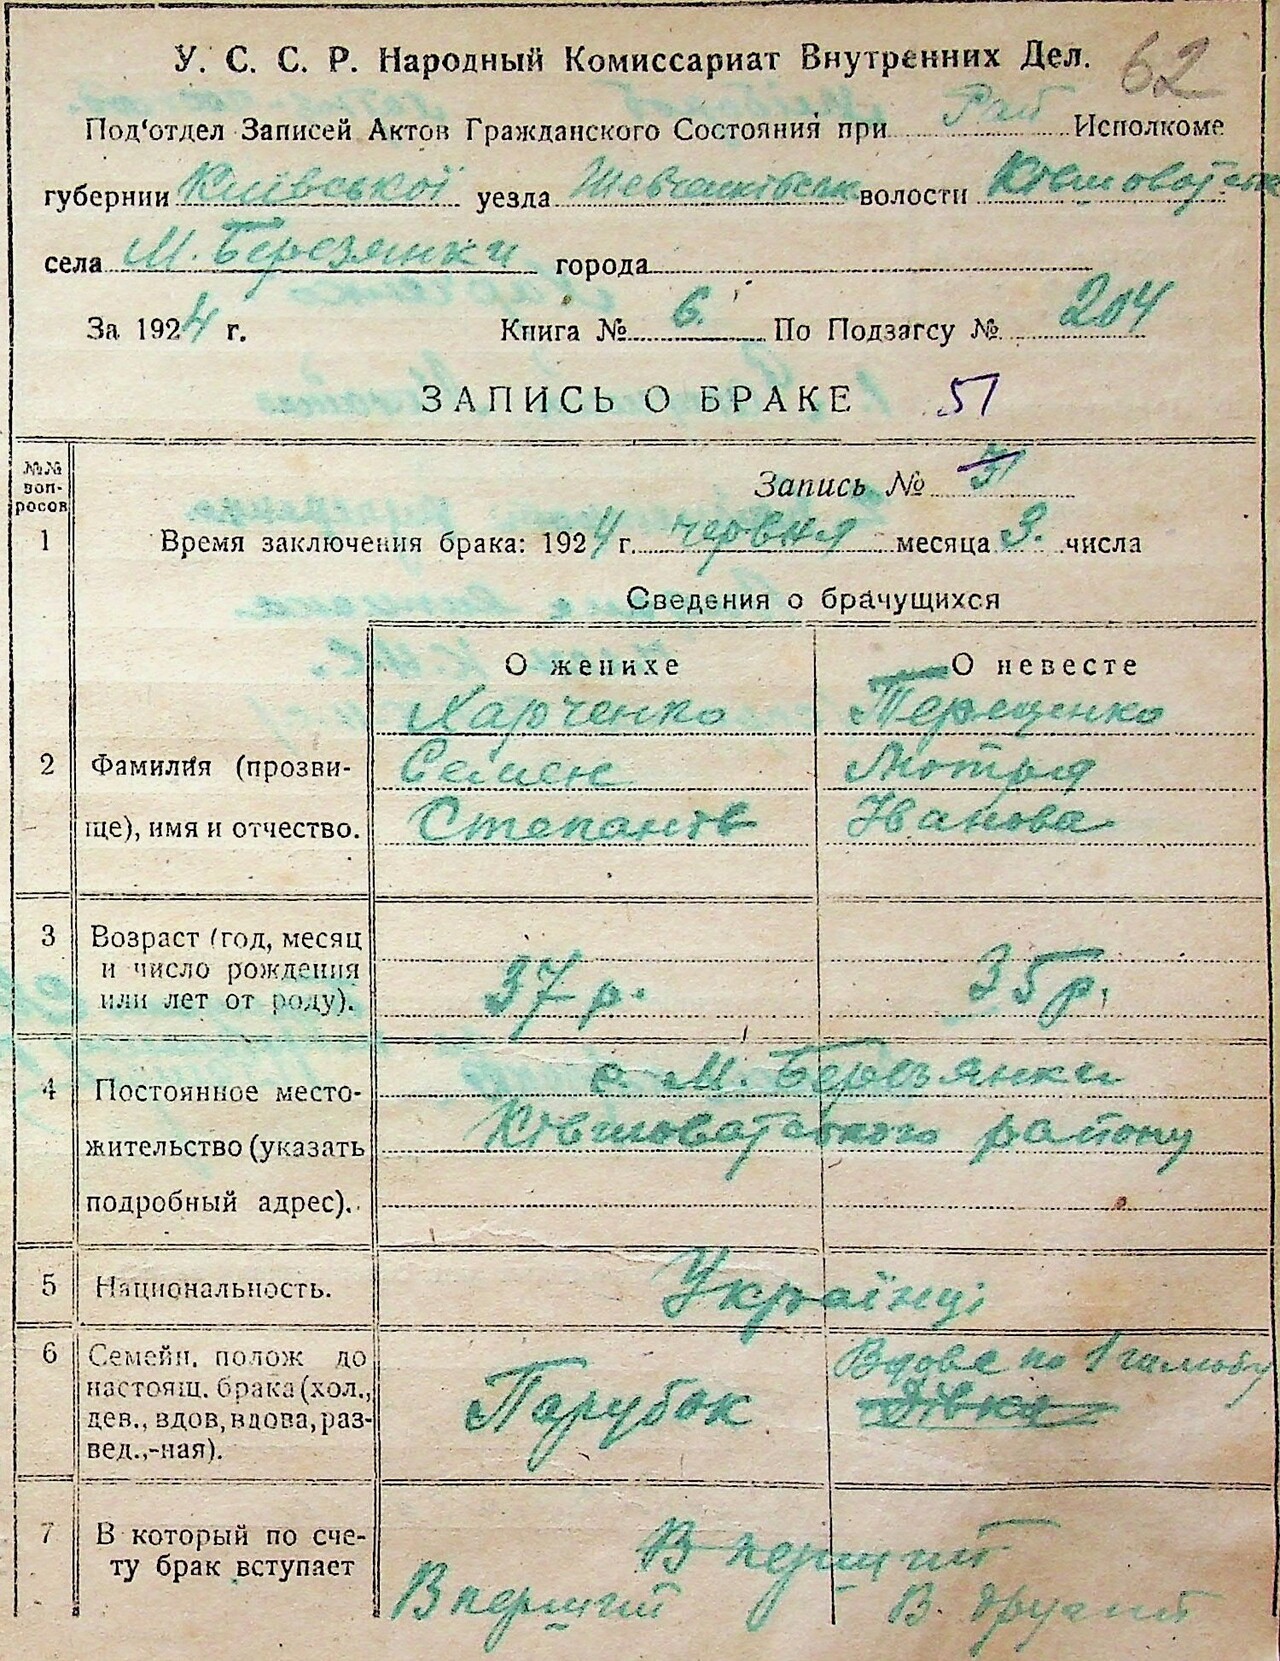 62
У. С. С. Р. Народный Комиссариат Внутренних Дел.
Под'отдел Записей Актов Гражданского Состояния при Рай Исполкоме
губернии Київської уезда Шевченківськ волости Ківшоватськ
села М. Березянки города
За 1924 г. Книга № 6. По Подзагсу № 204
ЗАПИСЬ О БРАКЕ 51
№№ вопросов
Запись № 51
1 Время заключения брака: 1924 г. червня месяца 3. числа
Сведения о брачущихся
О женихе О невесте
Харченко Терещенко
2 Фамилия (прозви- Семен Мотря
ще), имя и отчество. Степанів Іванова
3 Возраст (год, месяц
и число рождения 37 р. 35 р.
или лет от роду).
4 Постоянное место- с. М. Березянки
жительство (указать Ківшоватського району
подробный адрес).
5 Национальность. Українці
6 Семейн. полож до Вдова по 1 шлюбу
настоящ. брака (хол., Парубок Дівка
дев., вдов, вдова, раз-
вед.,-ная).
7 В который по сче- В перший
ту брак вступает В перший В. другий